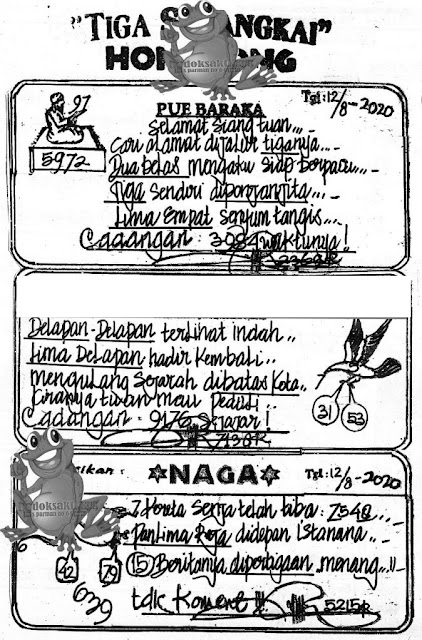 "TIGA S ANGKAI"
HON ONG
doksaki
PUE BARAKA
Tgl: 12/8-2020
97
5972
Selamat siang tuan..
Cari alamat dijalan tiganya..
Dua belas mengaku siap berpacu..
Tiga sendiri
Lima Empat senyum tangis..
Cadangan: 3984 waktunya!
2369R
Delapan-Delapan terlihat indah..
Lima Delapan hadir kembali..
mengulang sejarah dibatas kota..
Kiranya tuan mau peduli..
Cadangan: 9176 sejajar!
7138R
31
53
sikan:
NAGA
Tgl: 12/8-2020
doksaki
7 Kereta Senja telah tiba: 7540..
Panlima Raja didepan istanana..
(15) Beritanya diperagaan menang..!!
42
79
629
tdk Koment!!
5215R